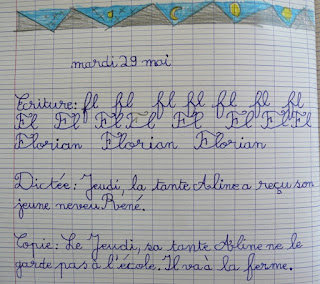 mardi 29 mai
Ecriture: fl fl fl fl fl fl fl
Fl Fl Fl Fl Fl Fl Fl Fl
Florian Florian Florian
Dictée: Jeudi, la tante Aline a reçu son
jeune neveu René.
Copie: Le Jeudi, sa tante Aline ne le
garde pas à l'école. Il va à la ferme.